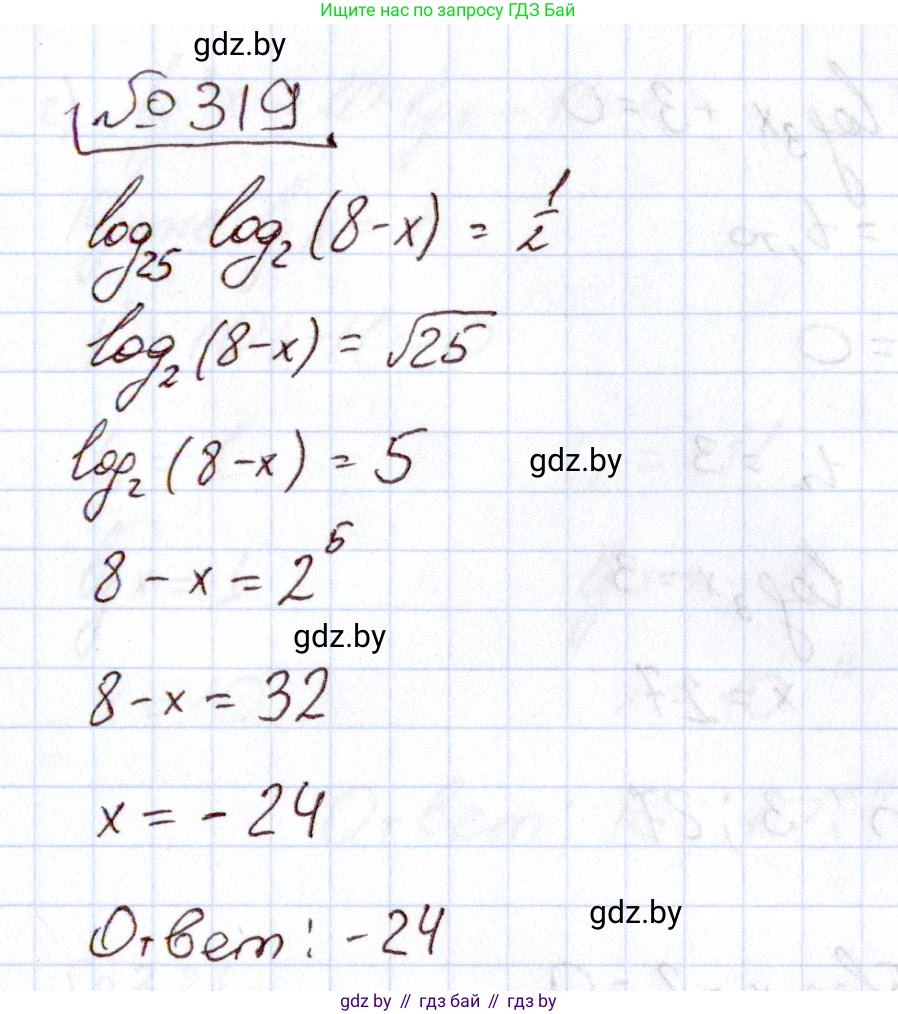 Ищите нас по запросу ГДЗ Бай
gdz.by
№ 319
log₂₅ log₂ (8-x) = 1/2
log₂ (8-x) = √25
log₂ (8-x) = 5
gdz.by
8 - x = 2⁵
gdz.by
8 - x = 32
x = - 24
gdz.by
Ответ: -24
gdz.by // гдз бай // гдз by